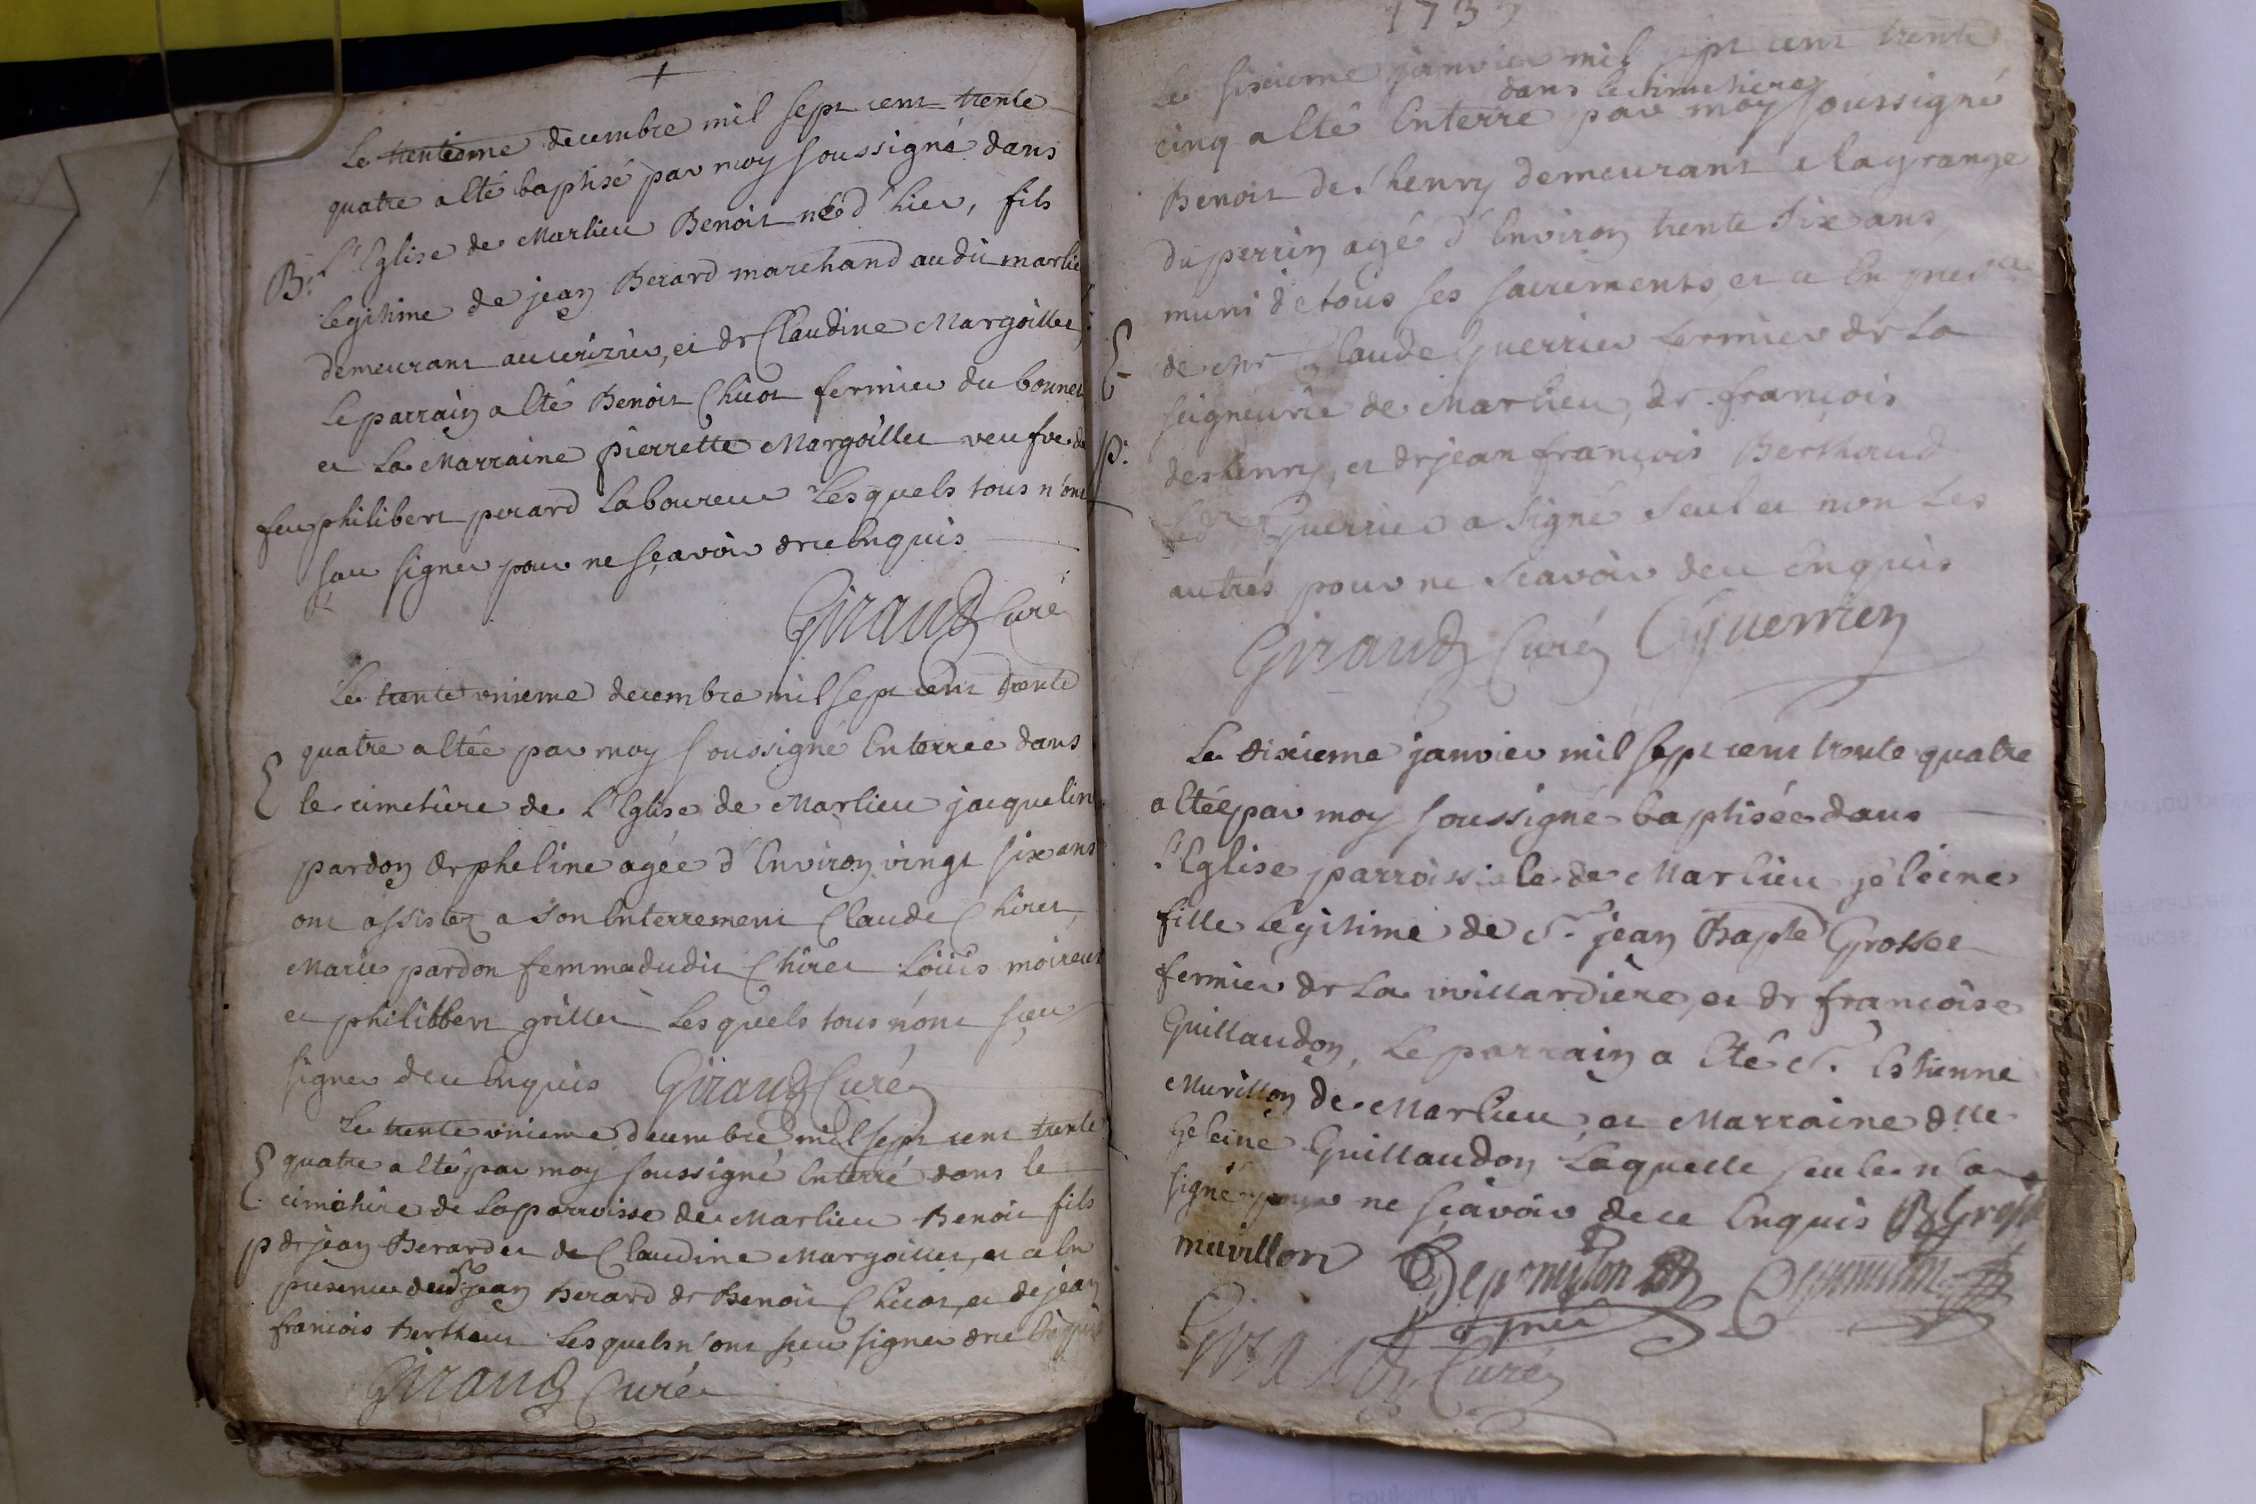 Le trentieme decembre mil sept cent trente
quatre a eté baptisé par moy soussigné dans
l'Eglise de Marlieu Benoit né d'hier, fils
Br.
legitime de jean Berard marchand audit marlieu
demeurant au cerizier, et de Claudine Margoillet
Le parrain a eté Benoit Chicot fermier du bonnet
et La Marraine pierrette Margoillet veufve de
feu philibert perard Laboureur Lesquels tous n'ont
sçu signer pour ne sçavoir de ce enquis
Giraud Curé
Le trente unieme decembre mil sept cent trente
quatre a etée par moy soussigné Enterrée dans
E
le cimetiere de L'Eglise de Marlieu jacqueline
pardon orpheline agée d'Environ vingt six ans
ont assistez a son Enterrement Claude Chiret,
Marie pardon femme dudit Chiret Loüis moireut
et philibbert grillet Lesquels tous n'ont sçeu
signer de ce enquis Giraud Curé
Le trente unieme decembre mil sept cent trente
E quatre a eté par moy soussigné Enterré dans le
cimetiere de La parroisse de Marlieu Benoit fils
p de jean Berard et de Claudine Margoillet, et a En
presence dudt jean Berard de Benoit Chicot, et de jean
francois Berthaut Lesquels n'ont sçeu signer de ce Enquis
Giraud Curé
1735
Le sixieme janvier mil sept cent trente
dans le cimetiere
cinq a eté Enterré par moy soussigné
Benoit deshenry demeurant a la grange
du perrin agé d'Environ trente six ans
muni de tous ses sacrements, et a En presce
E
de Mr Claude Guerrier fermier de La
seigneurie de Marlieu, de françois
p.
deshenry, et de jean françois Berthaud
Ledt Sr Guerrier a signé seul et non Les
autres pour ne sçavoir de ce enquis
Giraud Curé CGuerrier
Le dixieme janvier mil sept cent trente quatre
a etée par moy soussigné baptisée dans
l'Eglise parroissiale de Marlieu géleine
fille legitime de Sr. jean Bapte Grosset
fermier de La villardiere, et de francoise
Guillaudon, Le parrain a Eté Sr. Estienne
Muvillon de Marlieu, et Marraine dlle
geleine Guillaudon Laquelle seule n'a
signé pour ne sçavoir de ce Enquis B Gross
muvillon
Giraud Curé